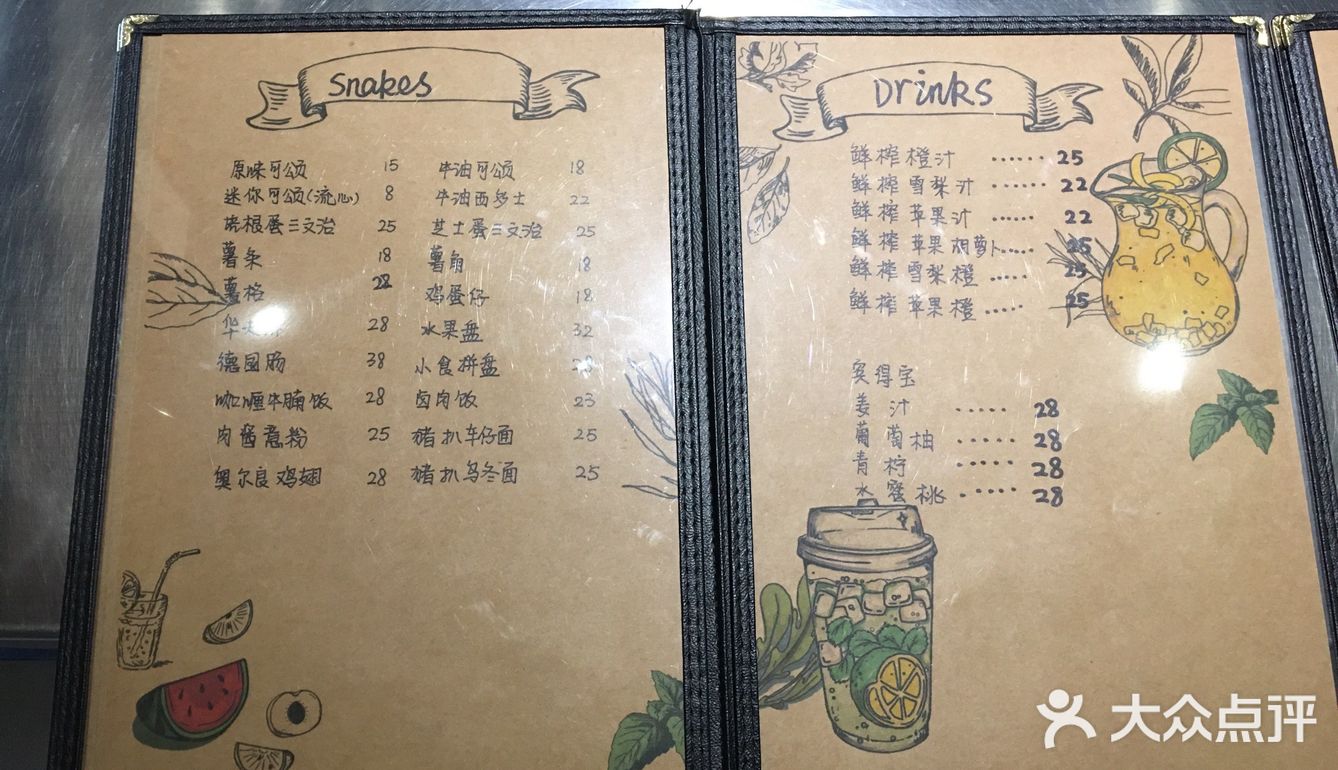 Snakes
原味可颂 15 牛油可颂 18
迷你可颂(流心) 8 牛油西多士 22
培根蛋三文治 25 芝士蛋三文治 25
薯条 18 薯角 18
薯格 28 鸡蛋仔 18
华夫 28 水果盘 32
德国肠 38 小食拼盘
咖喱牛腩饭 28 卤肉饭 23
肉酱意粉 25 猪扒车仔面 25
奥尔良鸡翅 28 猪扒乌冬面 25
Drinks
鲜榨橙汁 ...... 25
鲜榨雪梨汁 ...... 22
鲜榨苹果汁 ..... 22
鲜榨苹果胡萝卜..... 25
鲜榨雪梨橙 ..... 25
鲜榨苹果橙 ..... 25
宾得宝
姜汁 ..... 28
葡萄柚 ...... 28
青柠 ...... 28
水蜜桃 ...... 28
大众点评